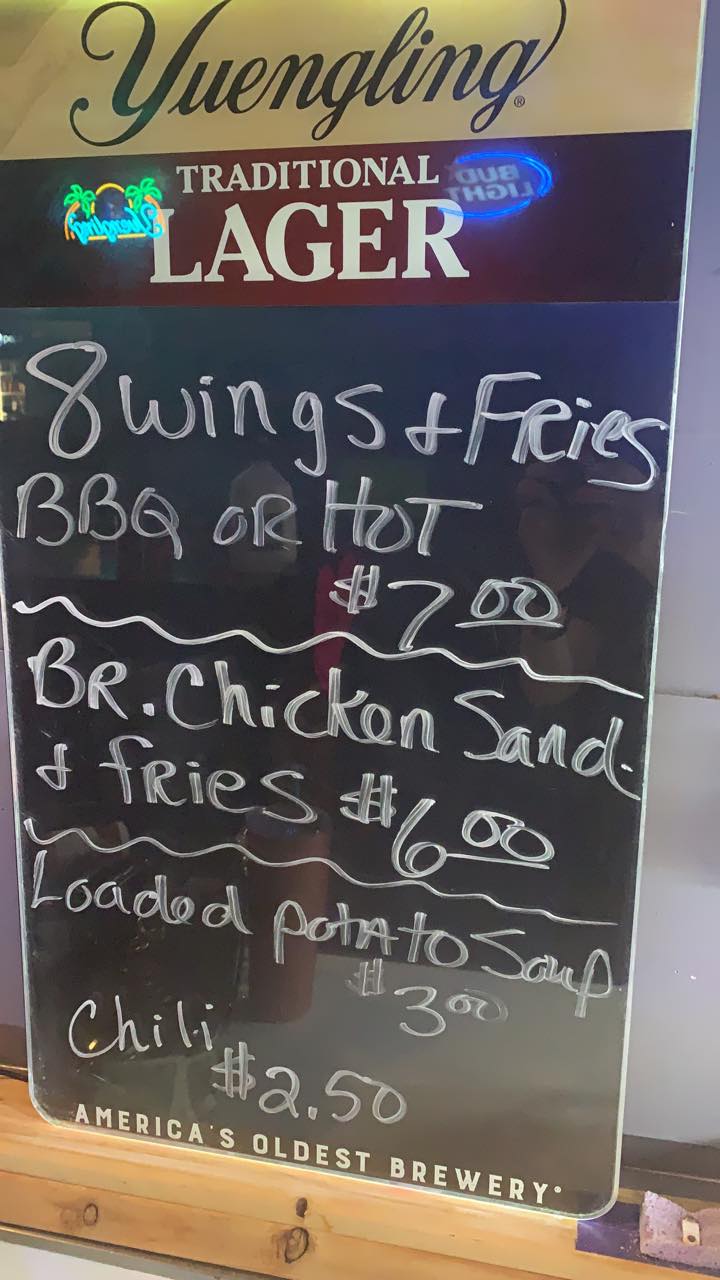 Yuengling®
TRADITIONAL
LAGER
Yuengling
BUD
LIGHT
8 wings & FRies
BBQ OR HOT
$7 00
BR. Chicken Sand.
& fRies $6 00
Loaded potato Soup
$3 00
Chili
$2.50
AMERICA'S OLDEST BREWERY®